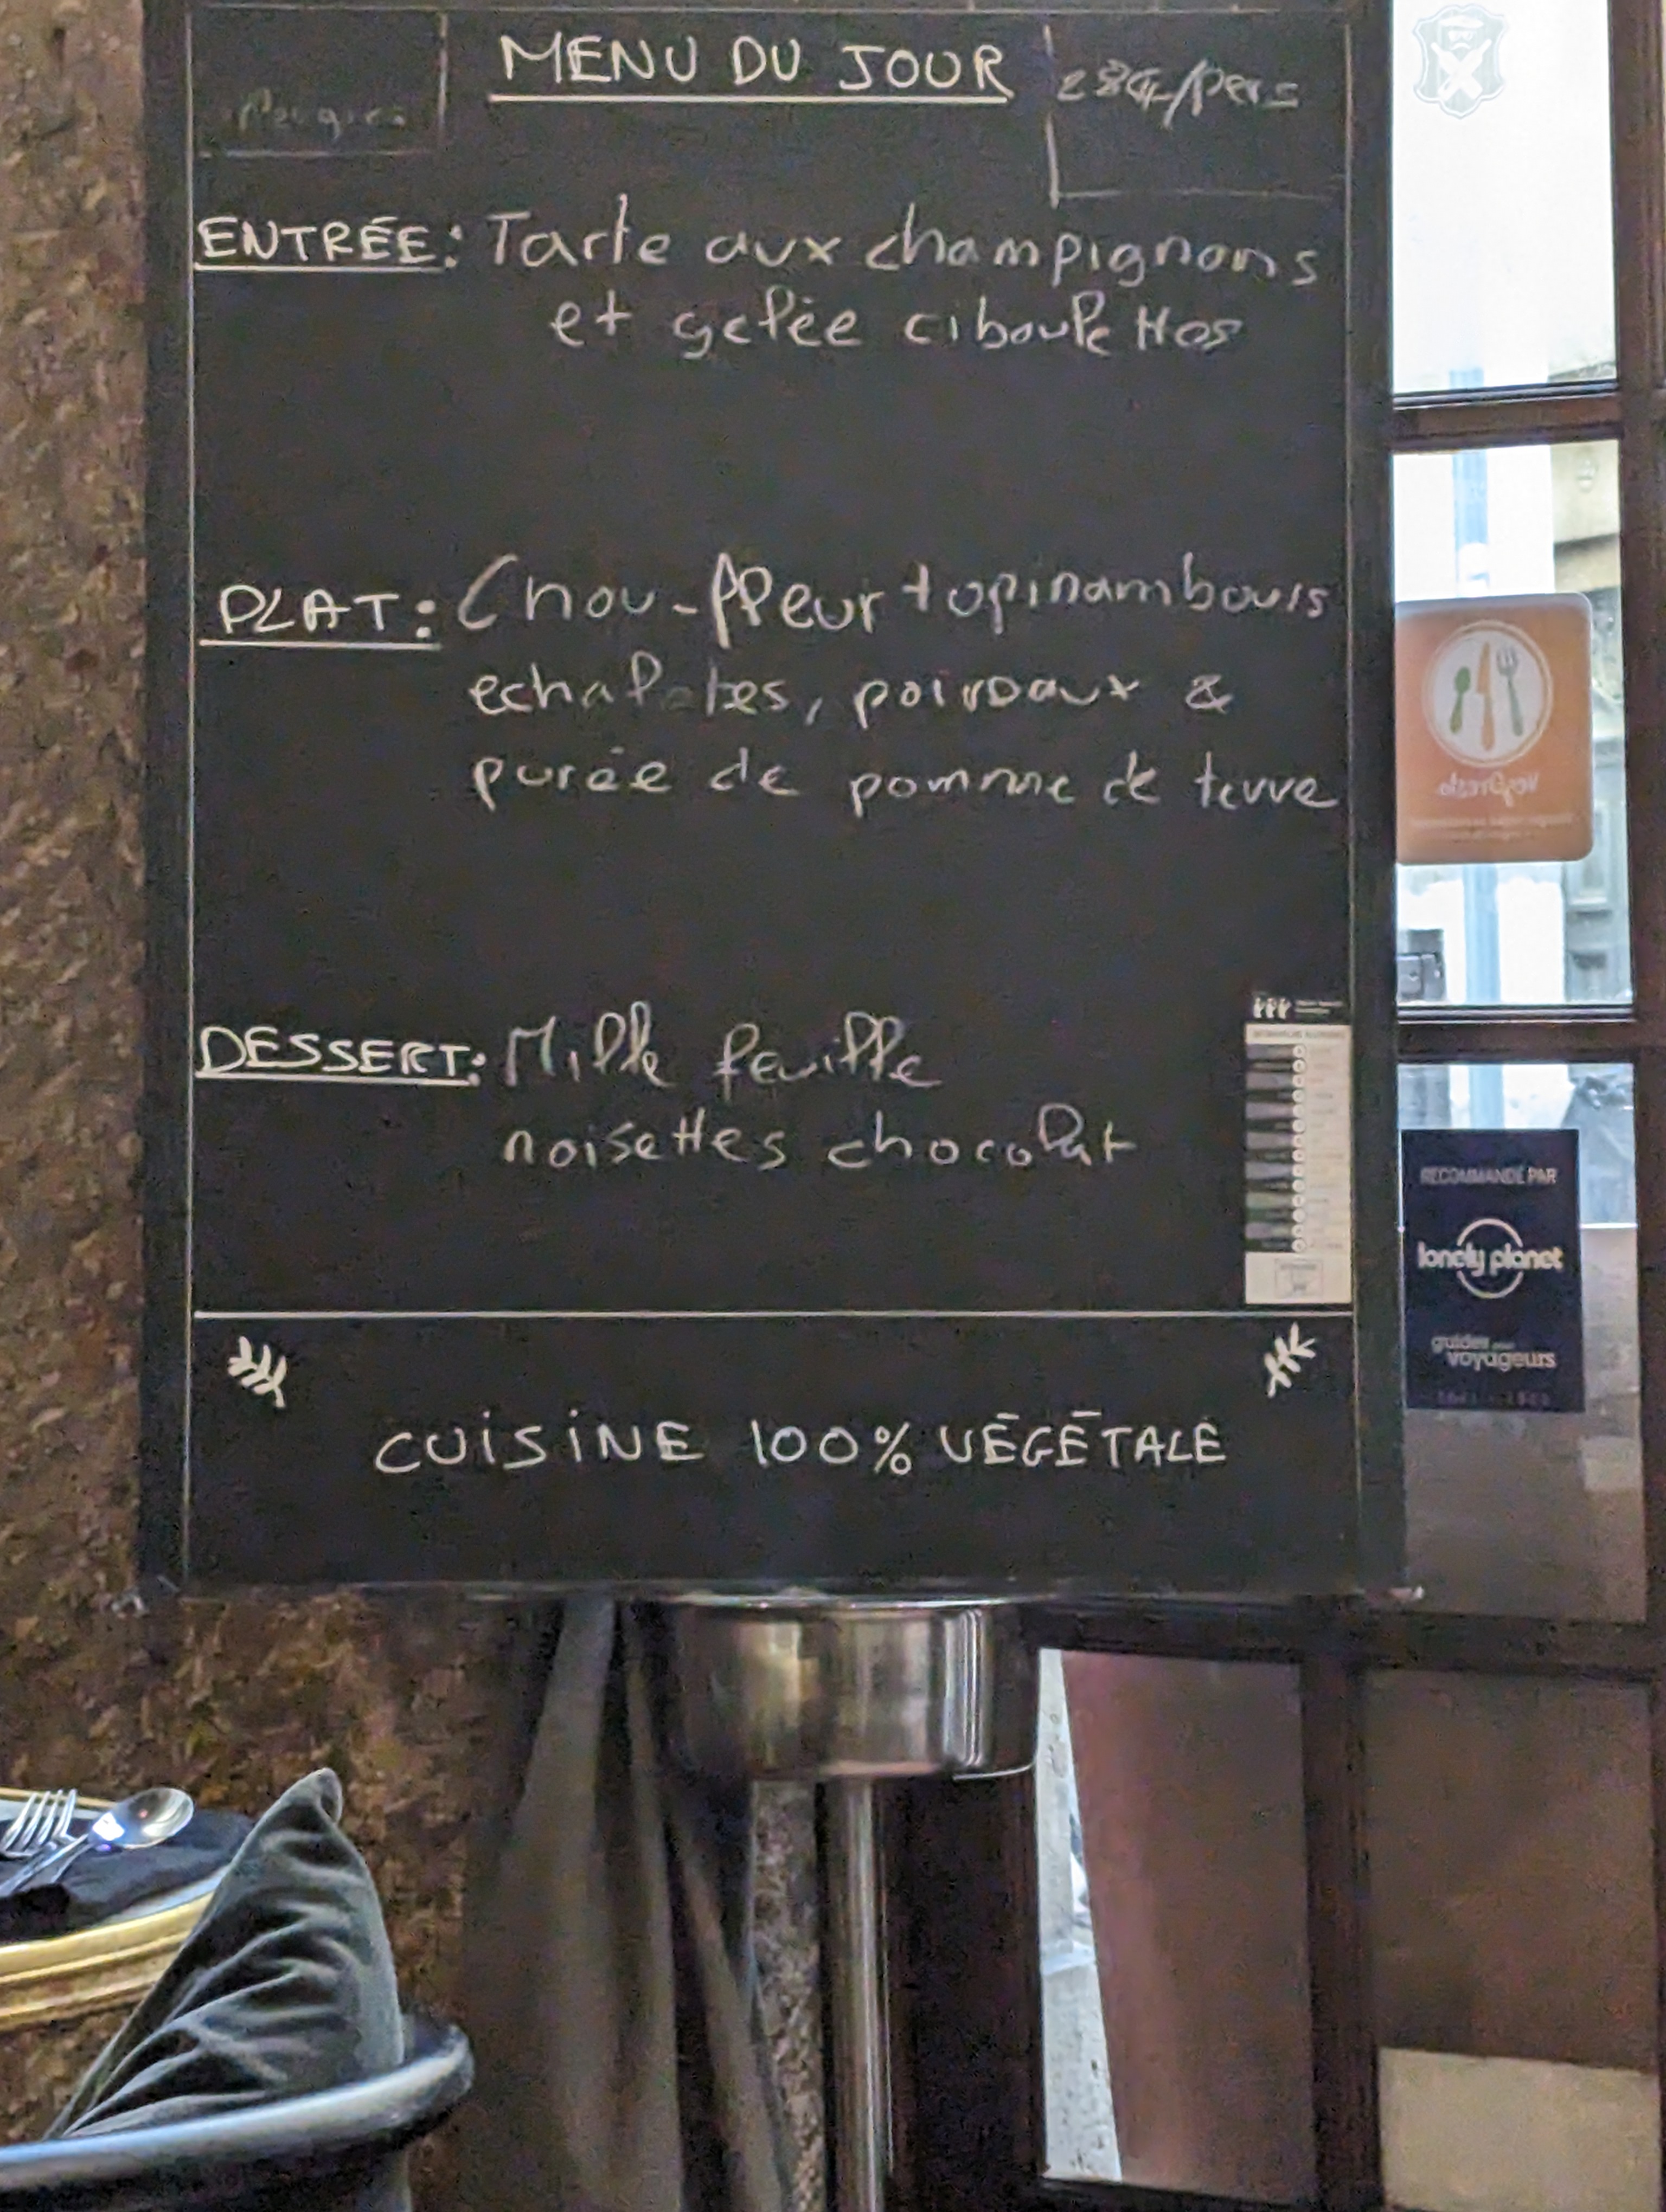 MENU DU JOUR
28€/pers
ENTRÉE: Tarte aux champignons
et gelée ciboulettes
PLAT: Chou-fleur topinambours
echalotes, poireaux &
purée de pomme de terre
DESSERT: Mille feuille
noisettes chocolat
CUISINE 100% VÉGÉTALE
VegOresto
RECOMMANDÉ PAR
lonely planet
guides
voyageurs